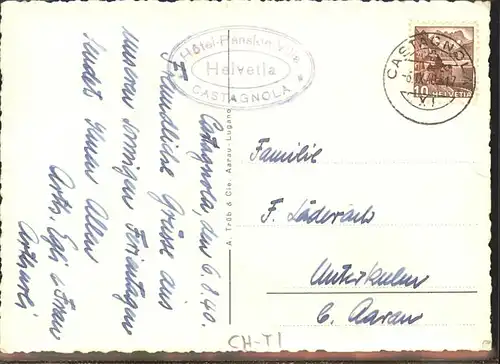 Hôtel-Pension Villa
Helvetia
CASTAGNOLA
CASTAGNOLA
10 HELVETIA
Castagnola, den 6.8.40.
Freundliche Grüsse aus
unseren sonnigen Ferientagen
sendet Ihnen Allen
Arth. Egli & Frau
A. Trüb & Cie, Aarau-Lugano
Familie
F. Läderach
Unterkulm
b. Aarau
CH-TI